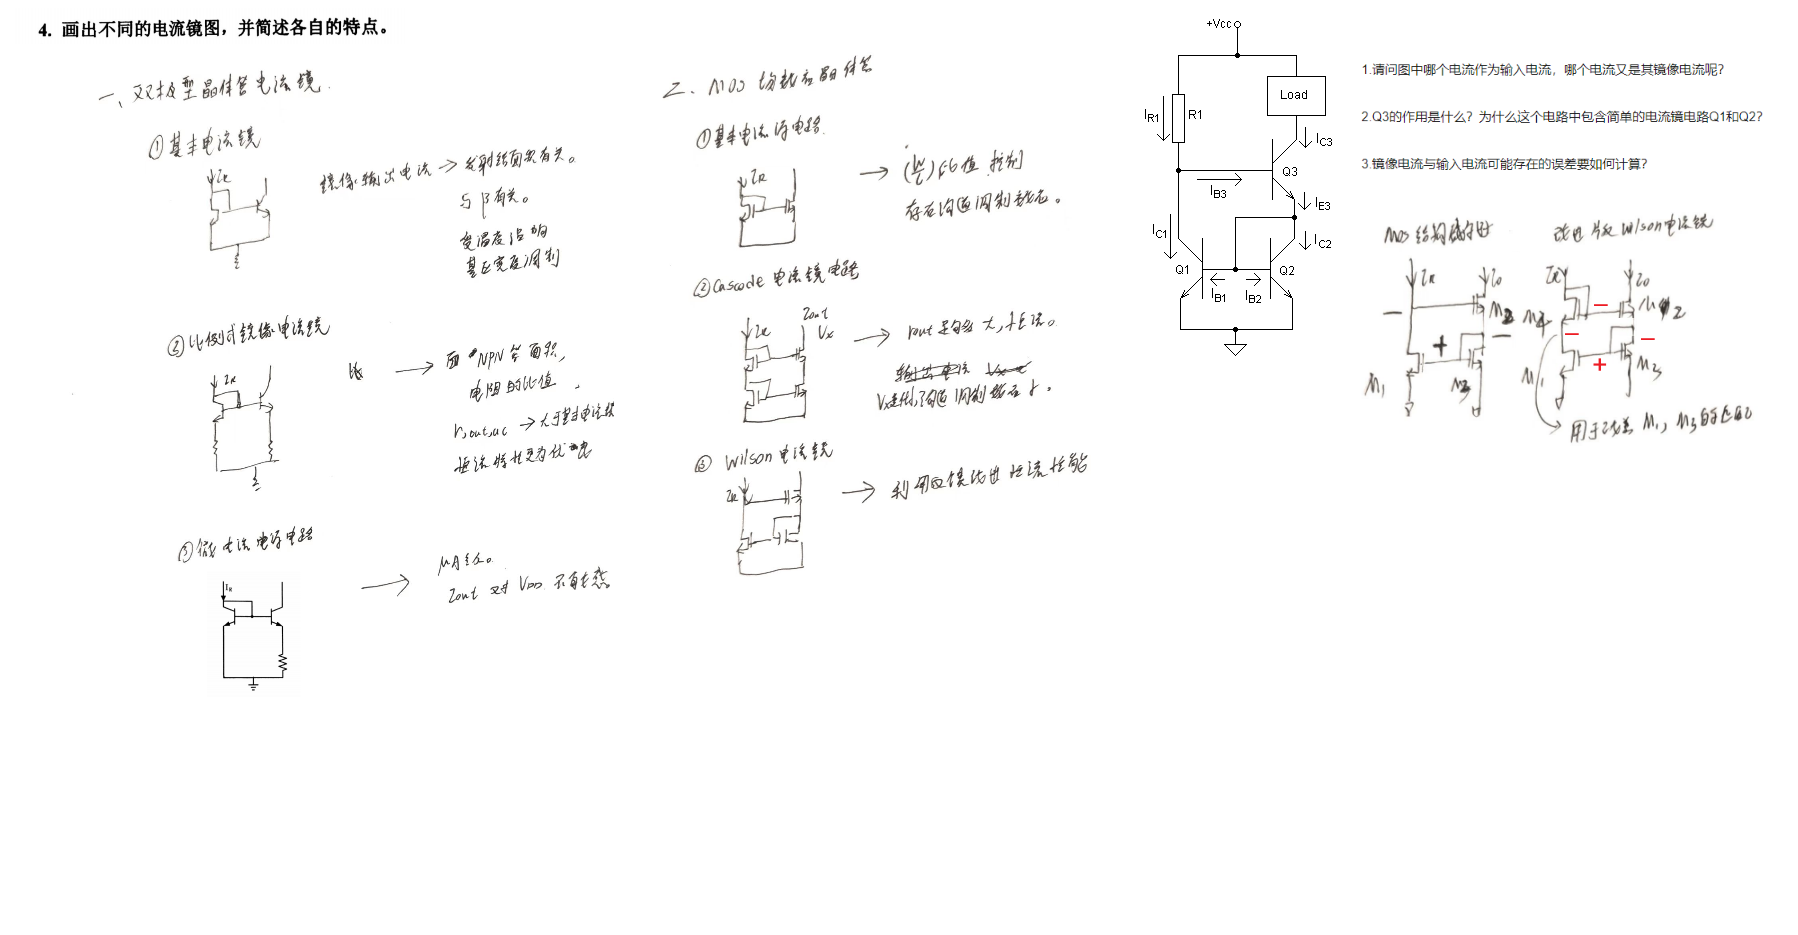 4. 画出不同的电流镜图，并简述各自的特点。
一、双极型晶体管电流镜
①基本电流镜
IR
镜像输出电流→发射结面积有关。
与β有关。
受温度影响
基区宽度调制
②比例式镜像电流镜
IR
→面 NPN管面积，
电阻的比值。
r,out,ac → 大于基本电流镜
恒流特性更为优
③微电流电源电路
IR
→ μA级。
Iout 对 VDD 不敏感
二、MOS场效应晶体管
①基本电流源电路
IR
→ (W/L)比值 控制
存在沟道调制效应。
②Cascode 电流镜电路
IR
Iout
Vx
→ rout 足够大，恒流。
③ Wilson 电流镜
IR
→ 利用反馈优化恒流性能
+Vcc
Load
IR1
R1
IC3
Q3
IB3
IE3
IC1
IC2
Q1
Q2
IB1
IB2
1.请问图中哪个电流作为输入电流，哪个电流又是其镜像电流呢？
2.Q3的作用是什么？为什么这个电路中包含简单的电流镜电路Q1和Q2？
3.镜像电流与输入电流可能存在的误差要如何计算？
MOS 结构
改进版 Wilson 电流镜
IR
Io
M2
+
M1
M3
IR
Io
M4
M2
+
M1
M3
用于改善 M1, M3 的